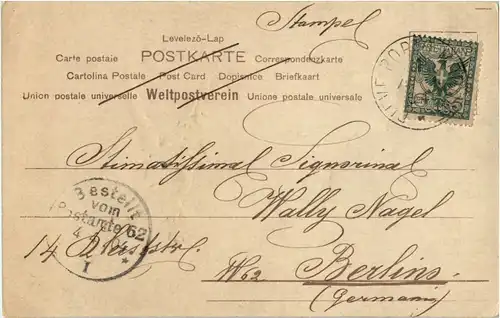 Stampel
Levelező-Lap
Carte postale POSTKARTE Correspondenzkarte
Cartolina Postale Post Card Dopisnice Briefkaart
Union postale universelle Weltpostverein Unione postale universale
Stimatissimal Signorinal
Wally Nagel
Bestellt
vom
Postamte 62
I *
14
W62 Berlins.
(Germania)